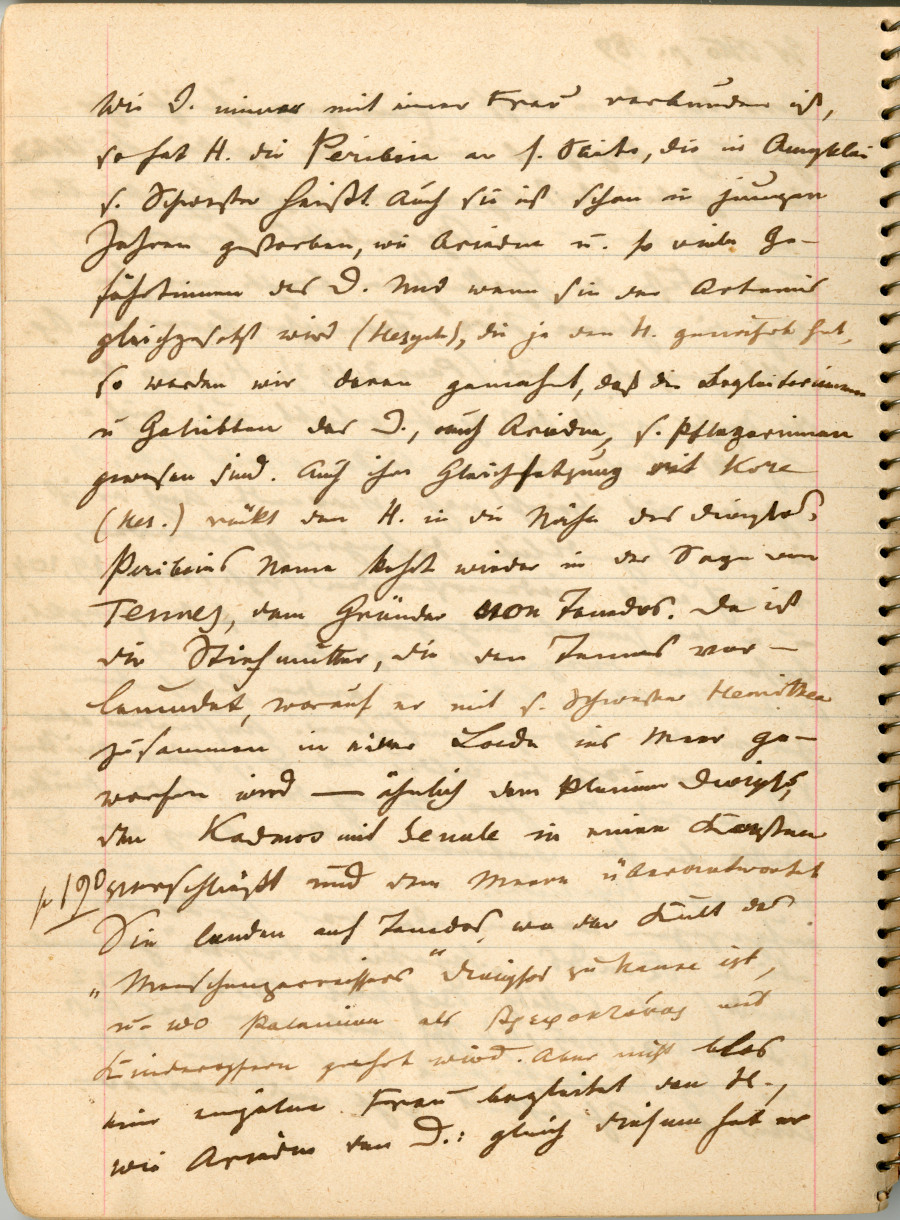 Wie D. immer mit einer Frau verbunden ist,
so hat H. die Periboia an s. Seite, die in Amyklai
s. Schwester heißt. Auch sie ist schon in jungen
Jahren gestorben, wie Ariadne u. so viele Ge-
fährtinnen des D. Und wenn sie der Artemis
gleichgesetzt wird (Hesych), die ja den H. genährt hat,
so werden wir daran gemahnt, daß die Begleiterinnen
u Geliebten des D., auch Ariadne, s. Pflegerinnen
gewesen sind. Auch ihre Gleichsetzung mit Kore
(Hes.) rückt den H. in die Nähe des Dionysos.
Periboias Name kehrt wieder in der Sage von
Tennes, dem Gründer von Tenedos. Da ist
die Stiefmutter, die den Tennes ver-
leumdet, worauf er mit s. Schwester Hemithea
zusammen in einer Lade ins Meer ge-
worfen wird — ähnlich dem kleinen Dionysos,
den Kadmos mit Semele in einen Kasten
p 190 verschließt und dem Meere überantwortet
Sie landen auf Tenedos, wo der Kult des
„Menschenzerreissers" Dionysos zu hause ist,
u. wo Palaimon als βρεφοκτόνος mit
Kinderopfern geehrt wird. Aber nicht blos
eine einzelne Frau begleitet den H.,
wie Ariadne den D.: gleich diesem hat er